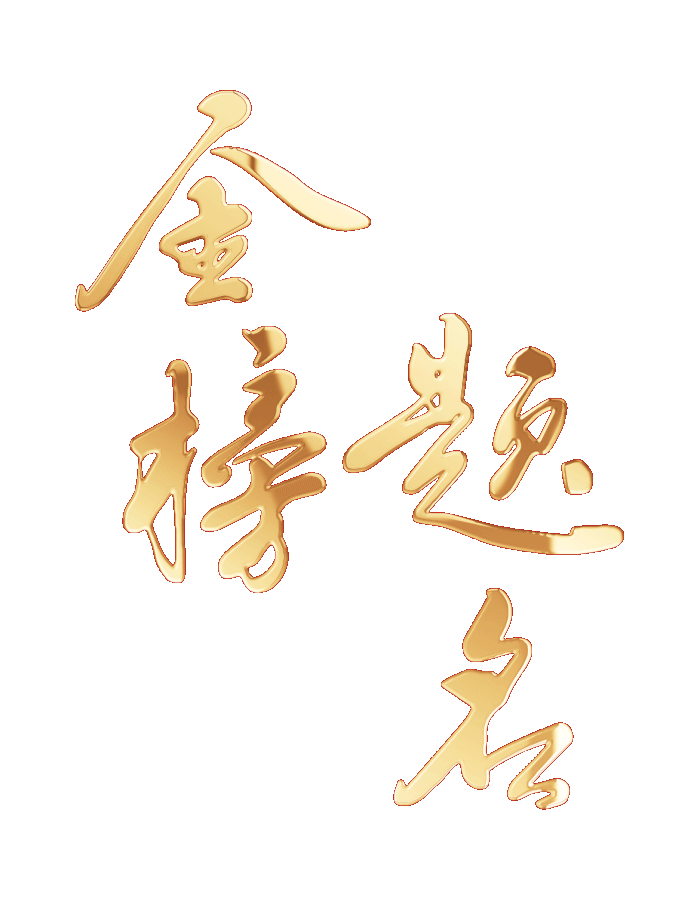 金榜
题名